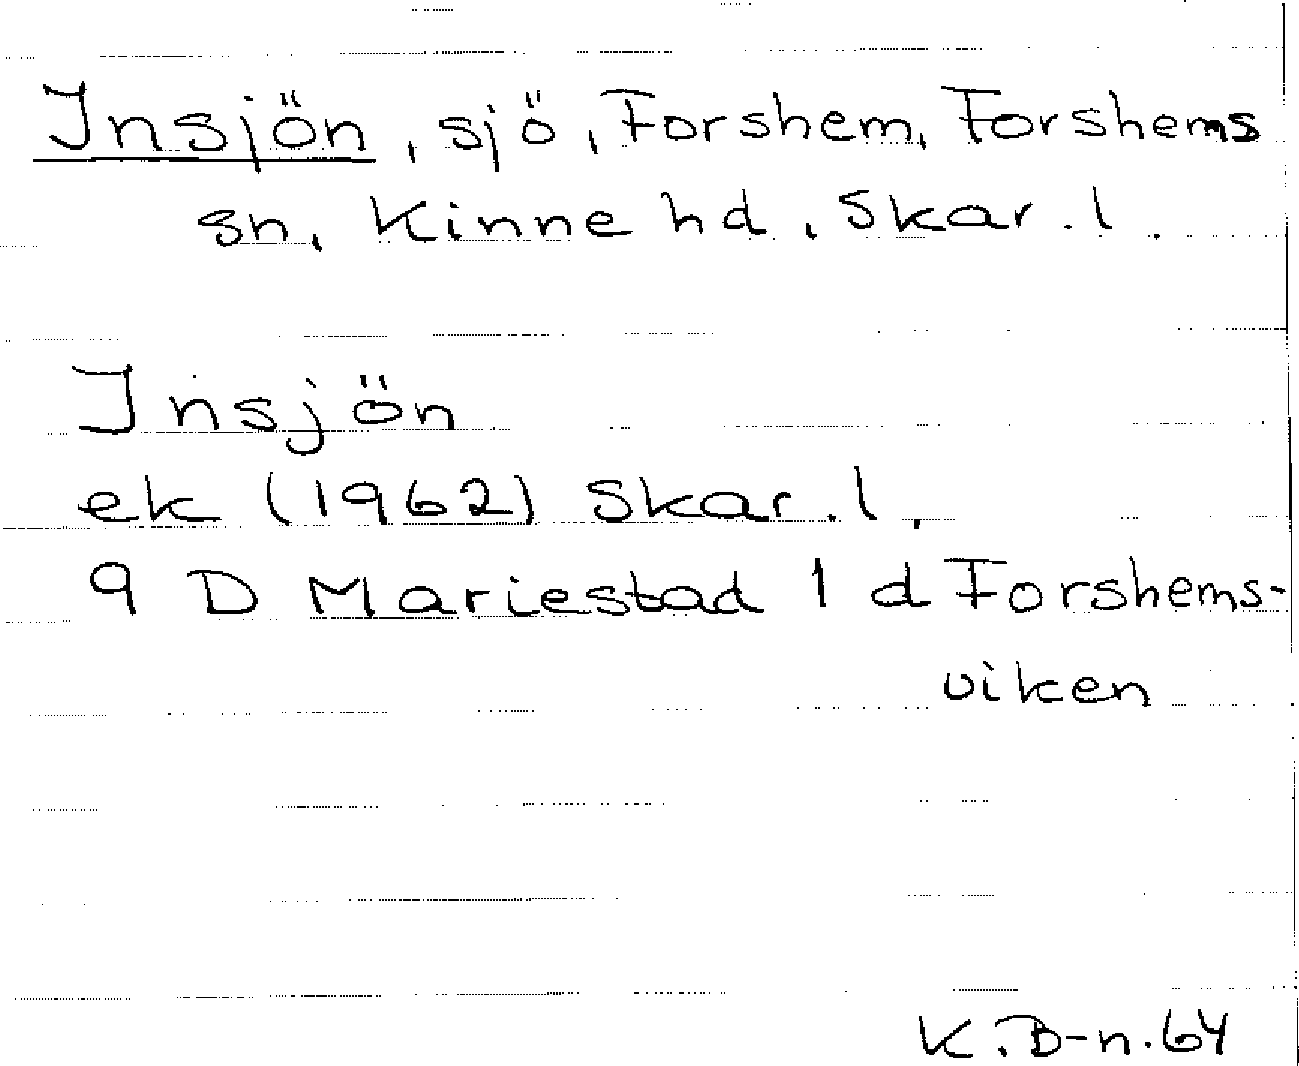 Insjön, sjö, Forshem, Forshems
sn, Kinne hd, Skar. l.
Insjön
ek (1962) Skar. l.
9 D Mariestad 1 d Forshems-
viken
K. B-n. 64